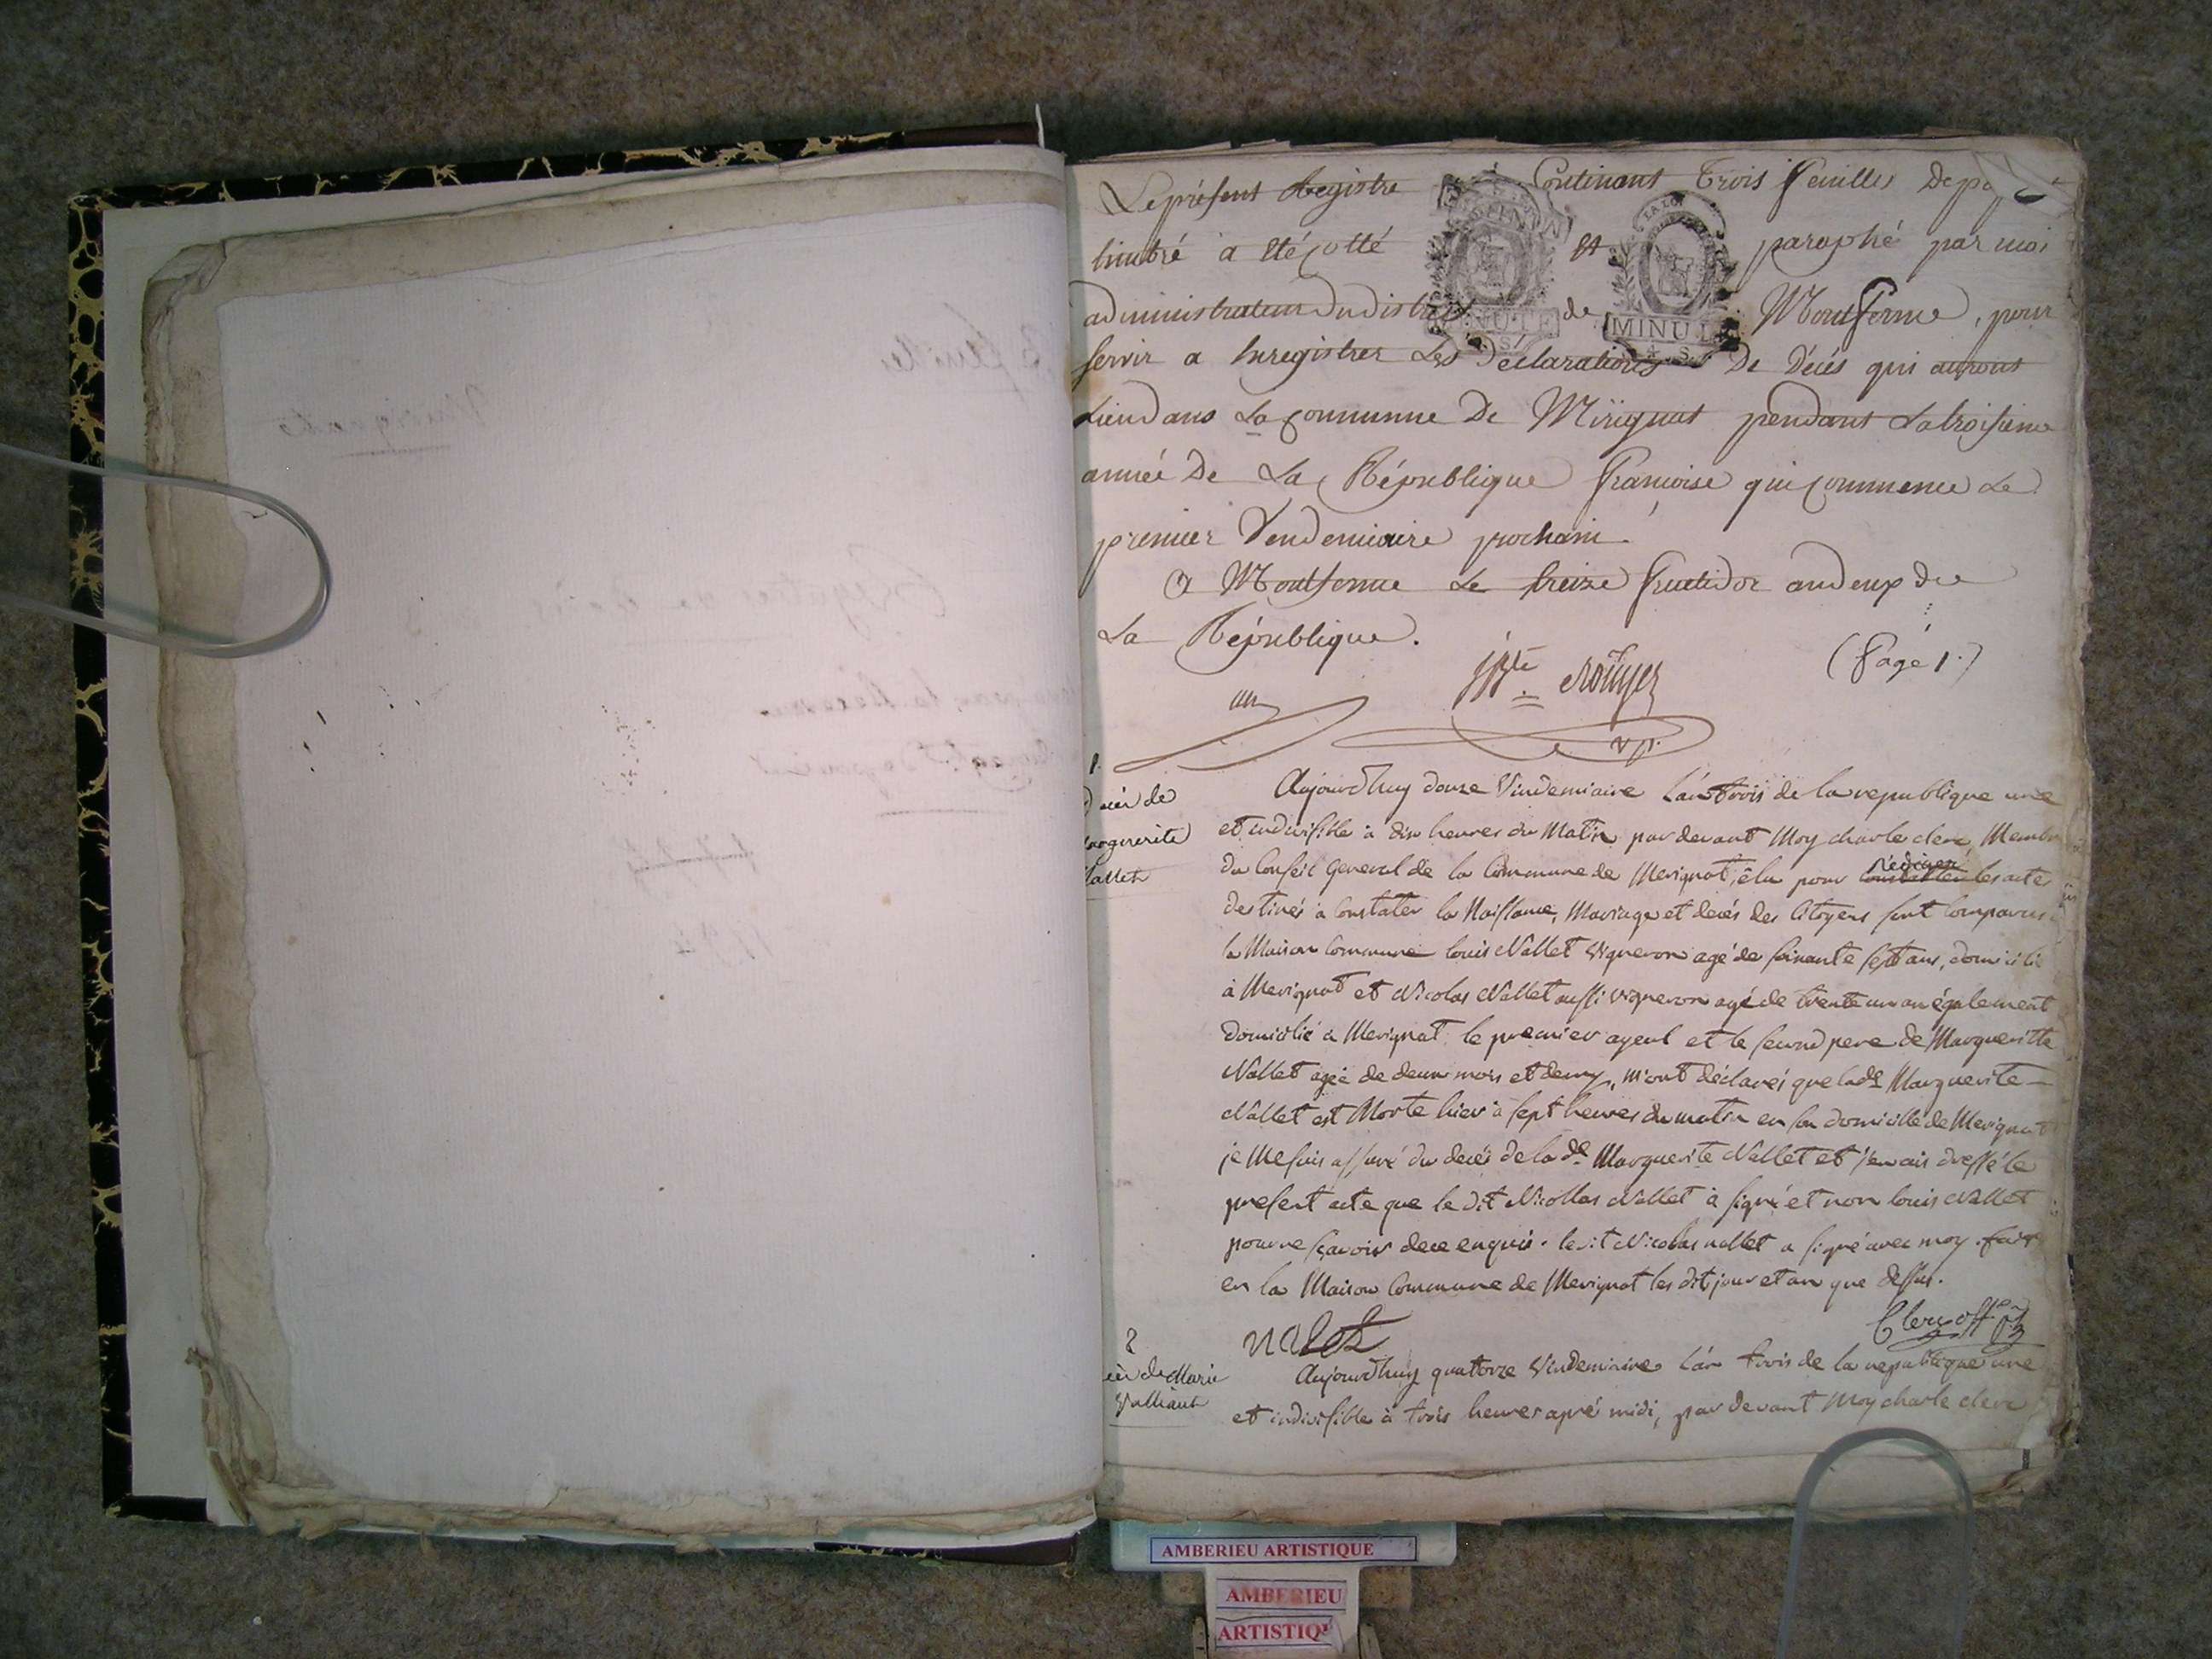 Le présent Registre Contenant Trois feuilles de
timbré a été cotté et paraphé par moi
administrateur du district de Montferme, pour
servir a Enregistrer Les Déclarations De Décés qui auront
Lieu dans La Commune De Mérignat pendant La troisieme
année De La République francoise qui commence Le
premier Vendemiaire prochain.
a Montferme Le treize fructidor an deux de
La République.
(Page 1.)
Rouyer
v p.
1.
décès de
Marguerite
Nallet
Aujourd'huy douze Vindemiaire L'an trois de la republique une
et indivisible à dix heures du Matin par devant Moy charle clerc, Membre
du Conseil General de la Commune de Merignat, élu pour rédiger les actes
destinés à Constater la Naissance, Mariage et decés des Citoyens sont comparus
la Maison Commune louis Nallet vigneron agé de soixante sept ans, domicilié
à Merignat et Nicolas Nallet aussi vigneron agé de trente un an également
domicilié à Merignat, le premier ayeul et le second pere de Margueritte
Nallet agée de deux mois et demy, m'ont déclarés que lade Marguerite
Nallet est Morte hier à sept heures du matin en son domicille de Merignat
je me suis assuré du decés de la de Marguerite Nallet et j'en ais dressé le
present acte que le dit Nicollas Nallet à signé et non louis Nallet
pour ne sçavoir de ce enquis. le dit Nicolas nallet a signé avec moy. fait
en la Maison Commune de Merignat les dit jour et an que dessus.
nalet
Clerc off. p.
2
décès de Marie
Valliant
Aujourd'huy quatorze Vindemiaire L'an trois de la republique une
et indivisible à trois heures apré midi, par devant Moy charle clerc
AMBERIEU ARTISTIQUE
AMBERIEU
ARTISTIQ